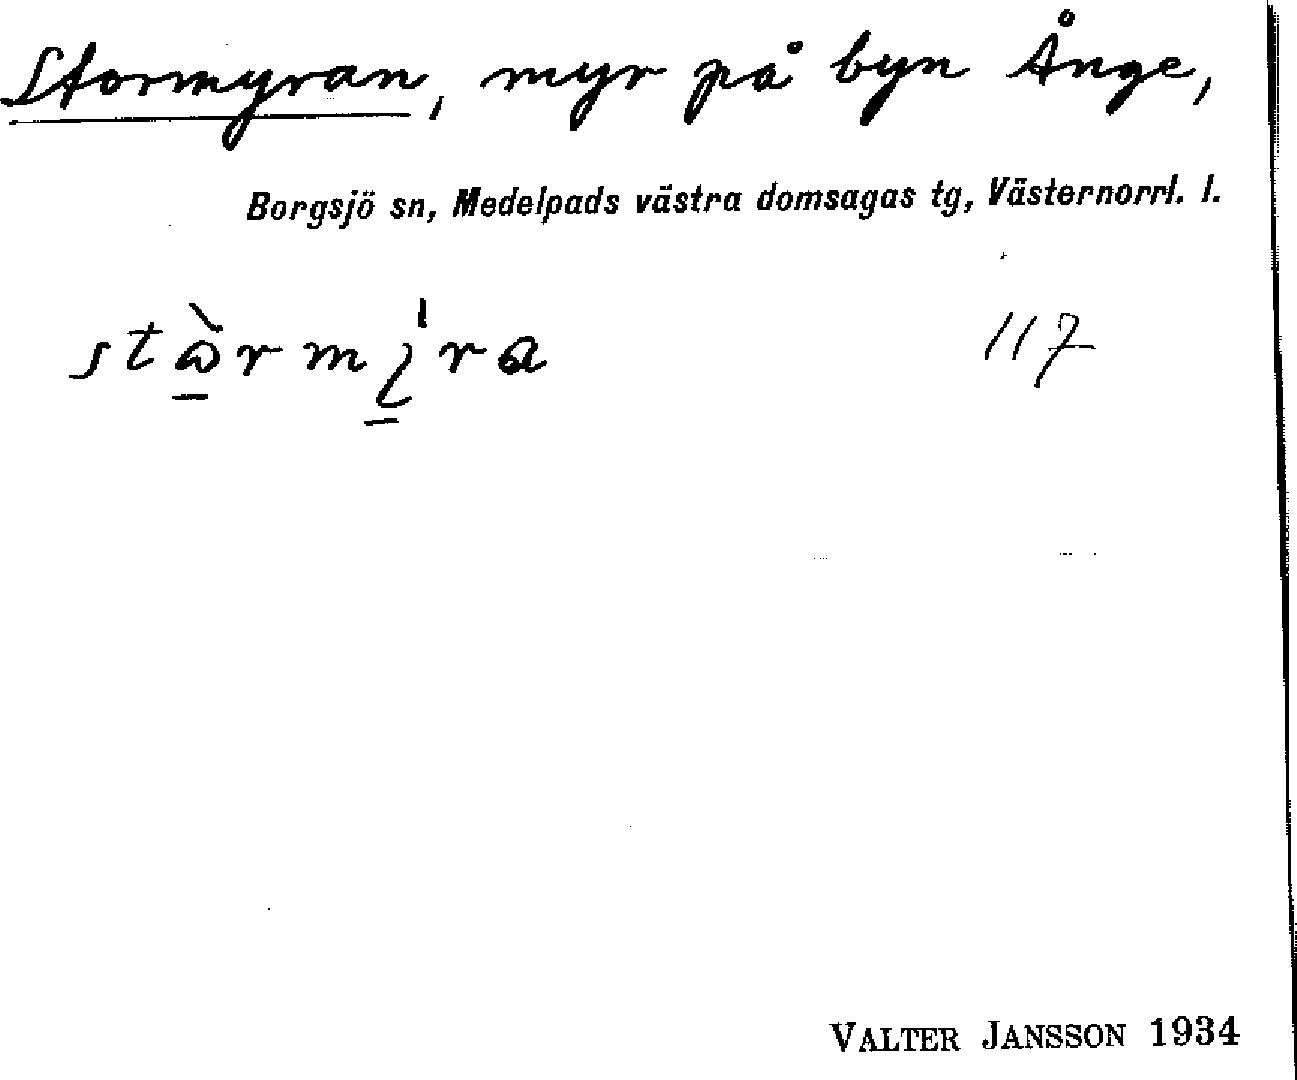 Stormyran, myr på byn Ånge,
Borgsjö sn, Medelpads västra domsagas tg, Västernorrl. l.
117
VALTER JANSSON 1934